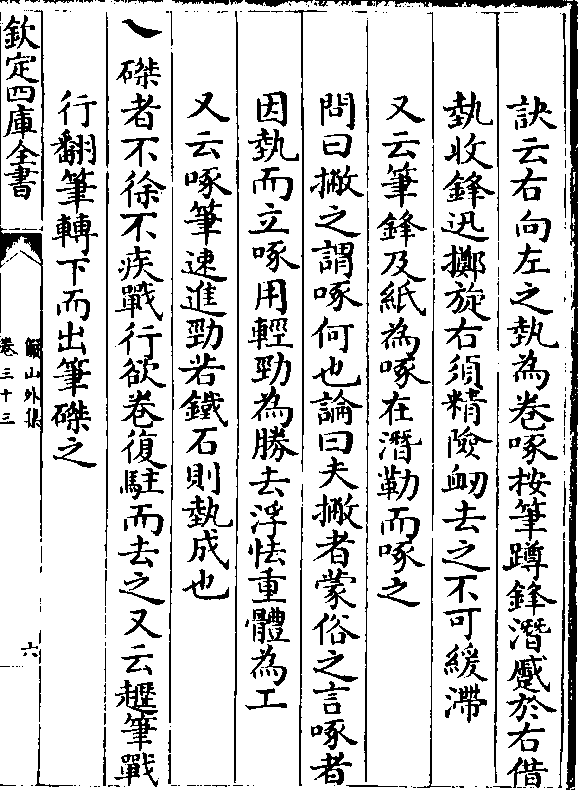 訣云右向左之埶為卷啄按筆蹲鋒潛蹙於右借
埶收鋒迅擲旋右須精險衂去之不可緩滯
又云筆鋒及紙為啄在潛勒而啄之
問曰撇之謂啄何也論曰夫撇者蒙俗之言啄者
因埶而立啄用輕勁為勝去浮怯重體為工
又云啄筆速進勁若鐵石則埶成也
乀磔者不徐不疾戰行欲卷復駐而去之又云趯筆戰
行翻筆轉下而出筆磔之
欽定四庫全書
山外集
卷三十三
六